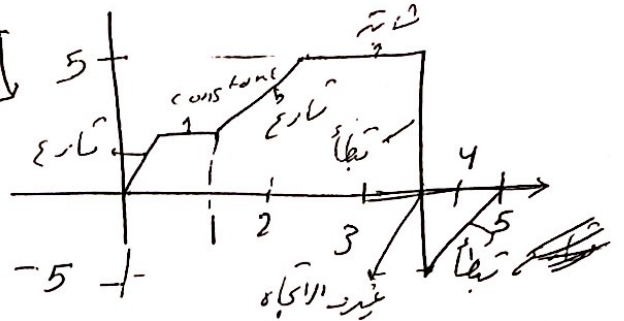 ثابتة
5
constant
تسارع
تسارع
تباطأ
1
2
3
4
5
-5
غيرت الاتجاه
تباطأ